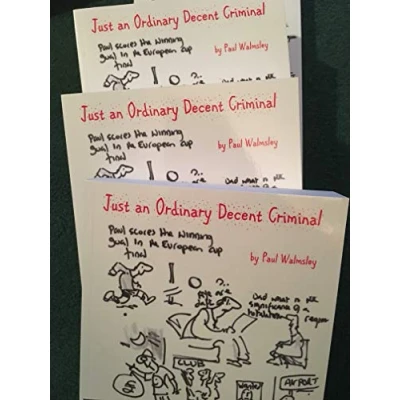 Just an Ordinary Decent Criminal
Paul scores the winning
goal in the European Cup
final
by Paul Walmsley
Just an Ordinary Decent Criminal
Paul scores the winning
goal in the European Cup
final
by Paul Walmsley
and what is the
Just an Ordinary Decent Criminal
Paul scores the winning
goal in the European Cup
final
by Paul Walmsley
and what is the
significance of a
CLUB
AIRPORT